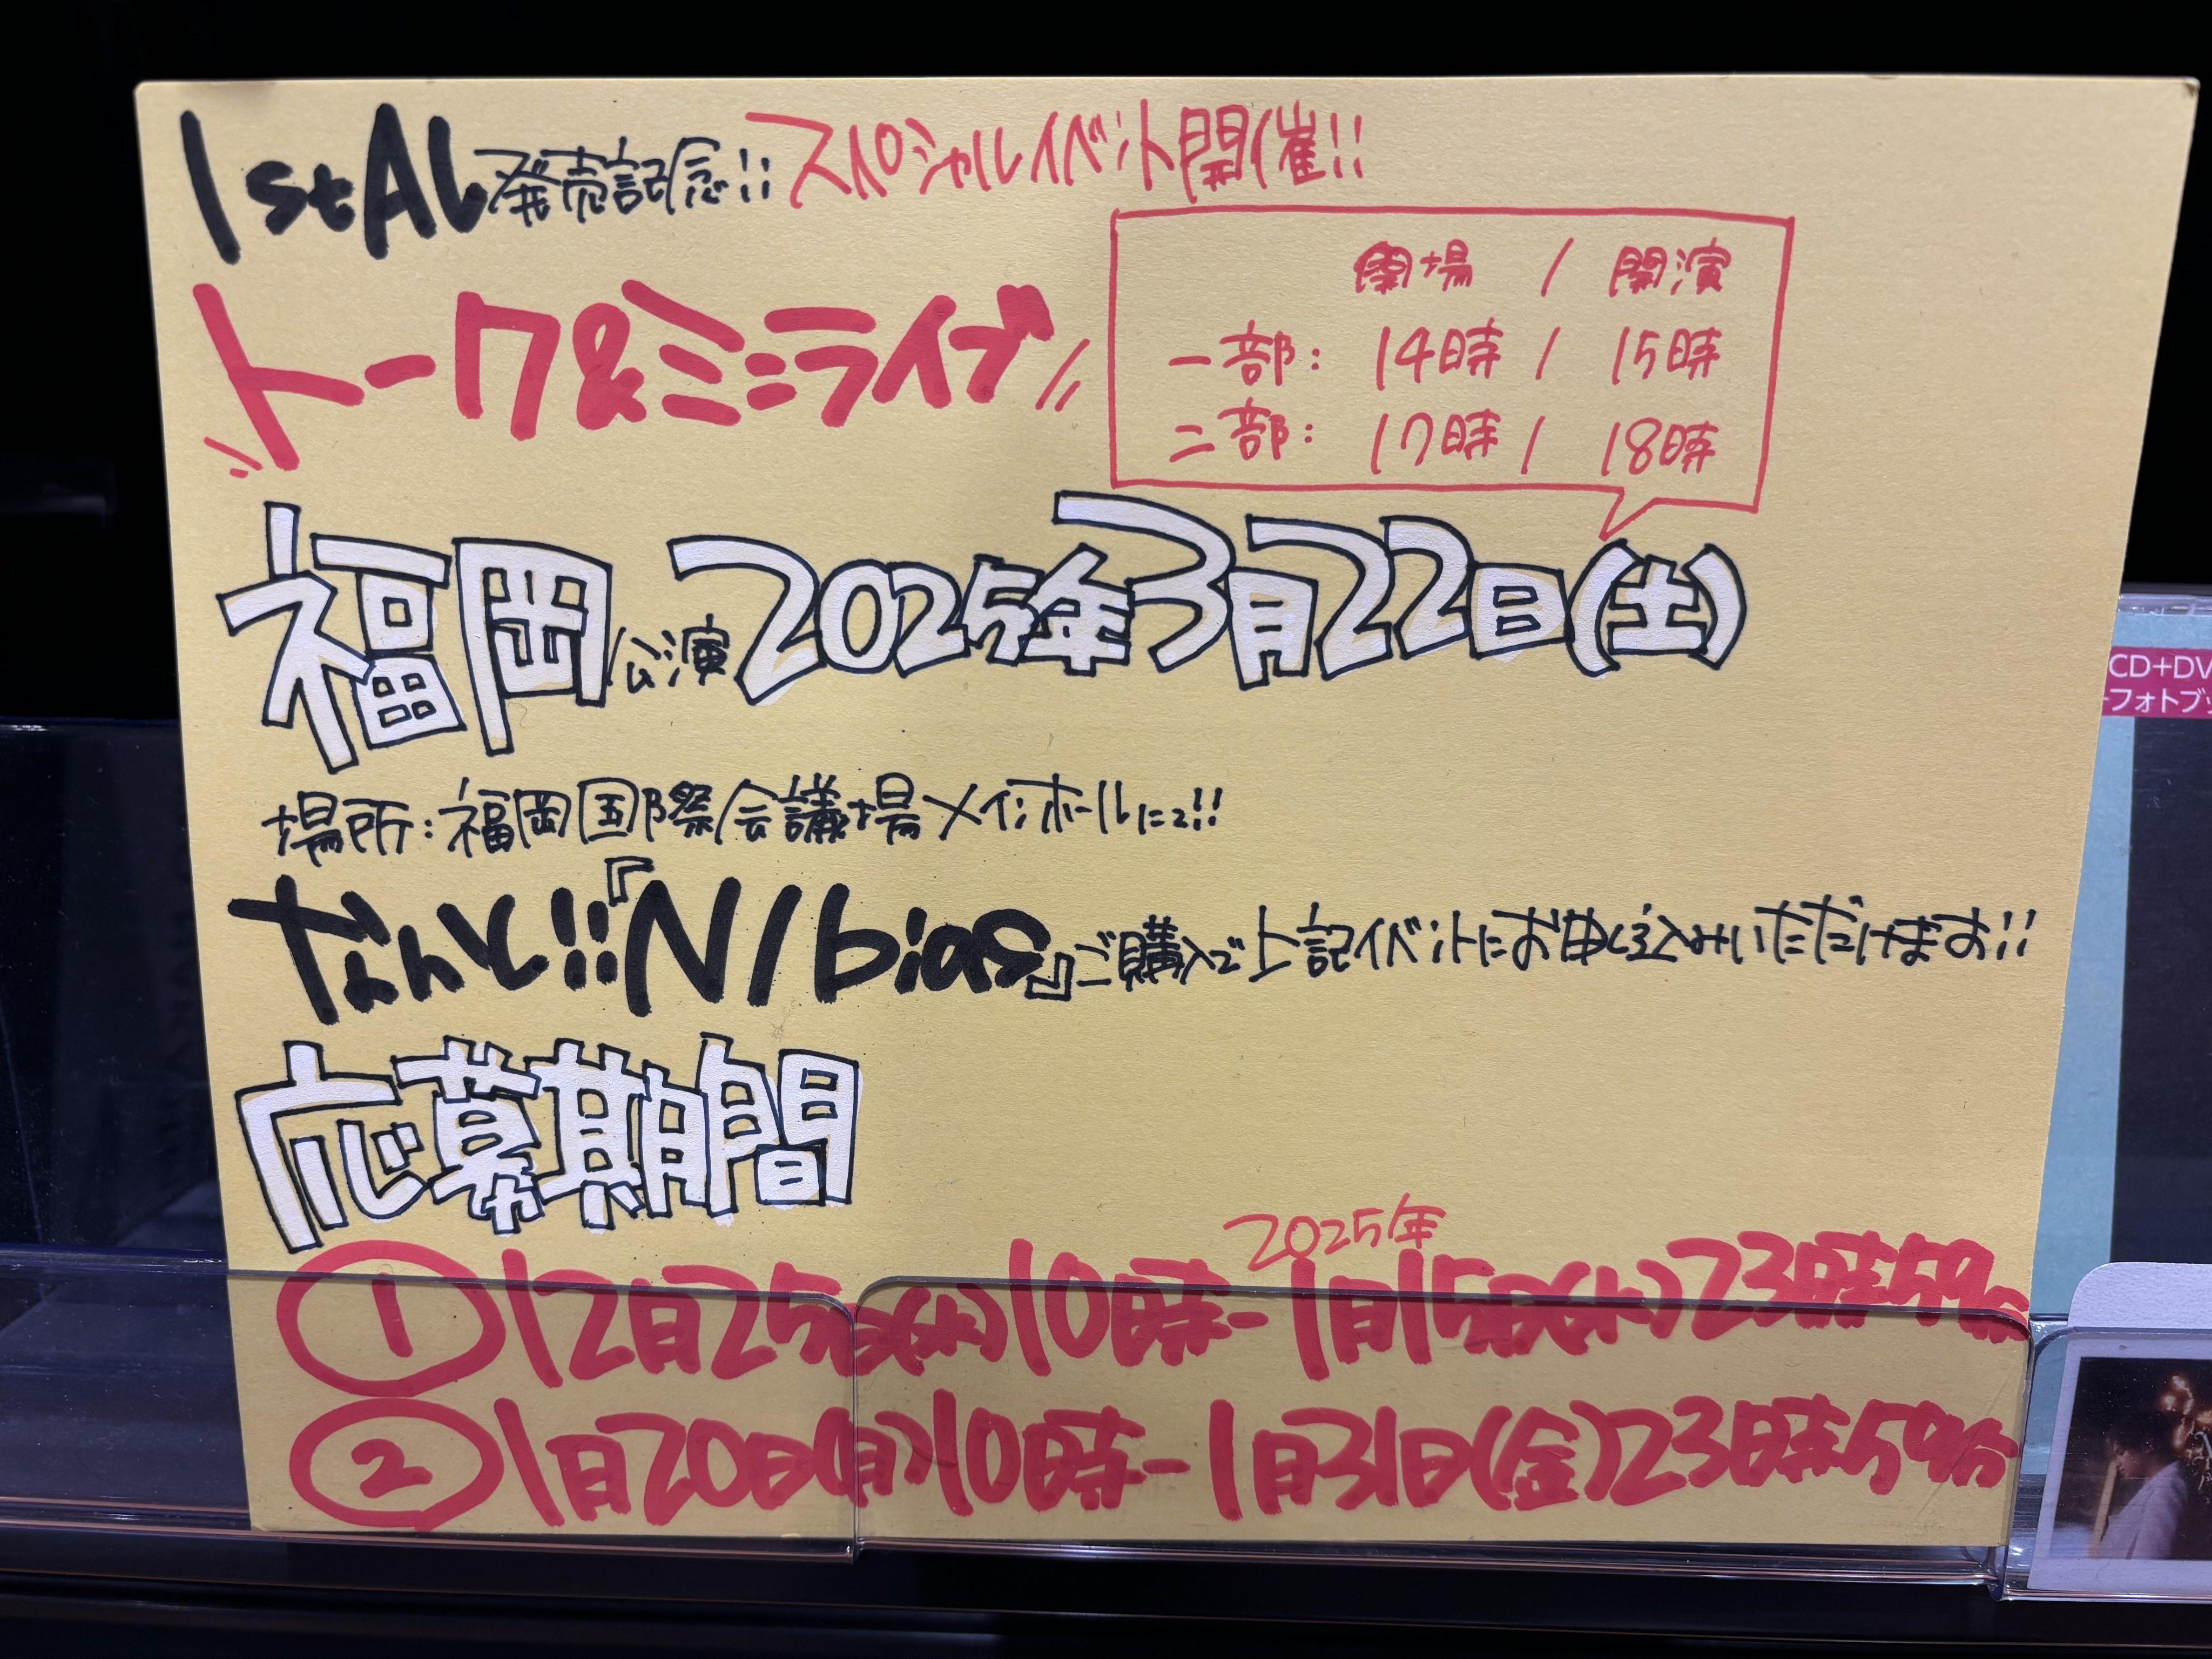 1stAL発売記念!! スペシャルイベント開催!!
トーク&ミニライブ
開場 / 開演
一部: 14時 / 15時
二部: 17時 / 18時
福岡公演 2025年3月22日(土)
場所:福岡国際会議場メインホールにて!!
なんと!!『N/bias』ご購入で上記イベントにお申し込みいただけます!!
応募期間
① 12月25日(水)10時-2025年1月15日(水)23時59分
② 1月20日(月)10時-1月31日(金)23時59分
CD+DV
フォトブッ